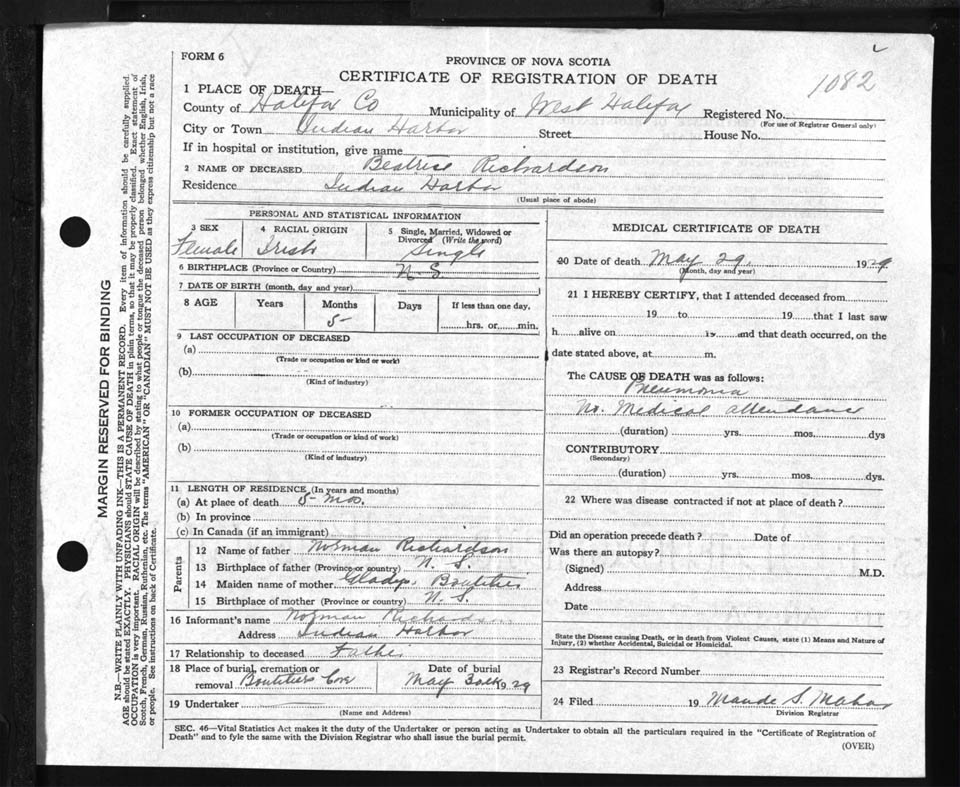 FORM 6
PROVINCE OF NOVA SCOTIA
CERTIFICATE OF REGISTRATION OF DEATH
1082
1 PLACE OF DEATH—
County of Halifax Co Municipality of West Halifax Registered No.
(For use of Registrar General only)
City or Town Indian Harbor Street House No.
If in hospital or institution, give name
2 NAME OF DECEASED Beatrice Richardson
Residence Indian Harbor
(Usual place of abode)
PERSONAL AND STATISTICAL INFORMATION
3 SEX 4 RACIAL ORIGIN 5 Single, Married, Widowed or Divorced (Write the word)
Female Irish Single
6 BIRTHPLACE (Province or Country) N S.
7 DATE OF BIRTH (month, day and year)
8 AGE Years Months Days If less than one day,
5 hrs. or min.
9 LAST OCCUPATION OF DECEASED
(a)
(Trade or occupation or kind or work)
(b)
(Kind of industry)
10 FORMER OCCUPATION OF DECEASED
(a)
(Trade or occupation or kind of work)
(b)
(Kind of industry)
11 LENGTH OF RESIDENCE (In years and months)
(a) At place of death 5 mos.
(b) In province
(c) In Canada (if an immigrant)
Parents
12 Name of father Norman Richardson
13 Birthplace of father (Province or country) N. S.
14 Maiden name of mother Gladys Boutilier
15 Birthplace of mother (Province or country) N. S.
16 Informant's name Norman Richardson
Address Indian Harbor
17 Relationship to deceased Father
18 Place of burial, cremation or removal Boutiliers Cove
Date of burial May 30th 1929
19 Undertaker
(Name and Address)
MEDICAL CERTIFICATE OF DEATH
20 Date of death May 29. 1929
(Month, day and year)
21 I HEREBY CERTIFY, that I attended deceased from
19 to 19 that I last saw
h alive on 19 and that death occurred, on the
date stated above, at m.
The CAUSE OF DEATH was as follows:
Pneumonia
No. Medical attendance
(duration) yrs. mos. dys
CONTRIBUTORY
(Secondary)
(duration) yrs. mos. dys.
22 Where was disease contracted if not at place of death?
Did an operation precede death? Date of
Was there an autopsy?
(Signed) M.D.
Address
Date
State the Disease causing Death, or in death from Violent Causes, state (1) Means and Nature of
Injury, (2) whether Accidental, Suicidal or Homicidal.
23 Registrar's Record Number
24 Filed 19 Maude S. Mahar
Division Registrar
SEC. 46—Vital Statistics Act makes it the duty of the Undertaker or person acting as Undertaker to obtain all the particulars required in the "Certificate of Registration of
Death" and to fyle the same with the Division Registrar who shall issue the burial permit.
(OVER)
MARGIN RESERVED FOR BINDING
N.B.—WRITE PLAINLY WITH UNFADING INK—THIS IS A PERMANENT RECORD. Every item of information should be carefully supplied.
AGE should be stated EXACTLY. PHYSICIANS should STATE CAUSE OF DEATH in plain terms, so that it may be properly classified. Exact statement of
OCCUPATION is very important. RACIAL ORIGIN will be described by stating to what people or tongue the deceased person belonged whether English, Irish,
Scotch, French, German, Russian, Ruthenian, etc. The terms "AMERICAN" OR "CANADIAN" MUST NOT BE USED as they express citizenship but not a race
or people. See instructions on back of Certificate.